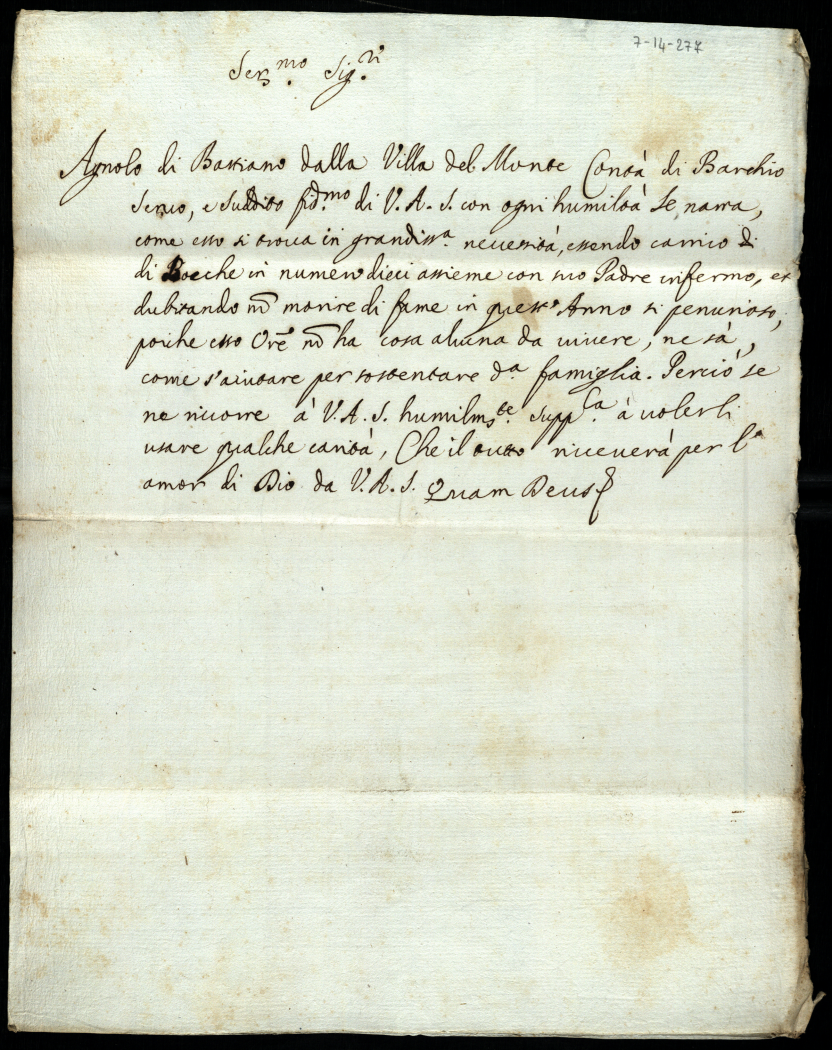 7-14-277
Ser.mo Sig.re
Agnolo di Bastiano dalla Villa del Monte Contà di Barchio
Seruo, e Suddito fid.mo di V. A. S. con ogni humiltà Le narra,
come esso si troua in grandiss.a necessità, essendo carrico di
di Bocche in numero dieci assieme con suo Padre infermo, et
dubitando nõ morire di fame in questo Anno si penurioso,
poiche esso Ore nõ ha cosa alcuna da uiuere, ne sà,
come s'aiutare per sostentare d.a famiglia. Perciò se
ne ricorre à V. A. S. humilm.te supp.ca à uolerli
usare qualche carità, Che il tutto riceuerà per l'
amor di Dio da V. A. S. Quam Deus